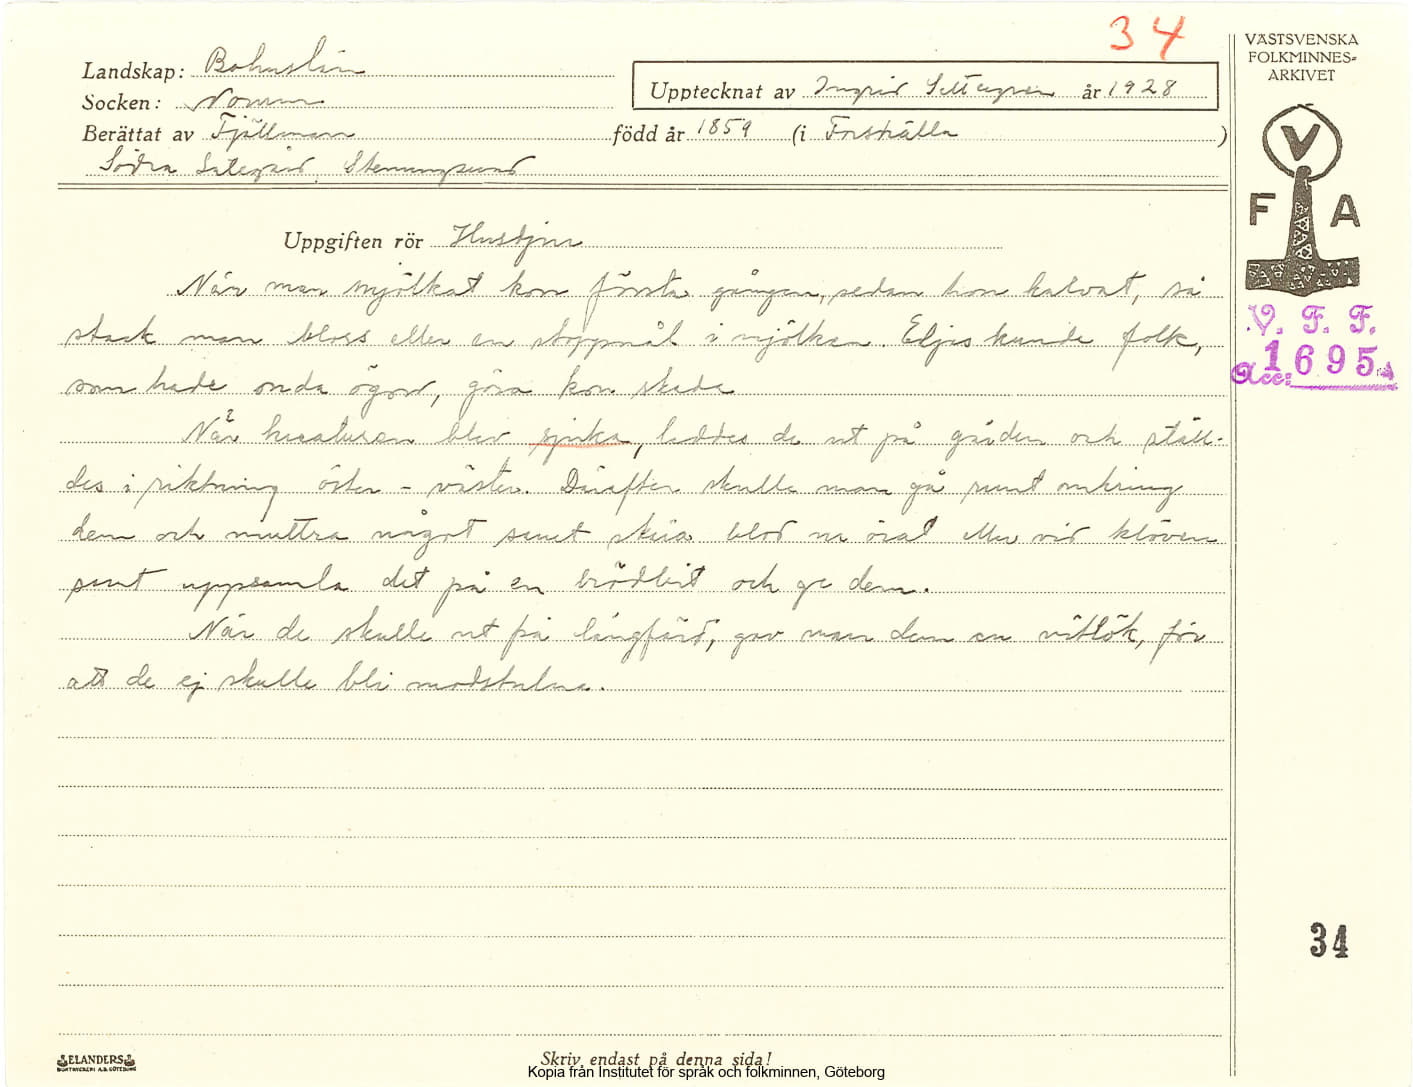 34
Landskap: Bohuslän
Socken: Norum
Upptecknat av Ingrid år 1928
Berättat av Fjällman född år 1859 (i Forshälla )
Södra Stenungsund
Uppgiften rör Husdjur
När man mjölkat kon första gången, sedan hon kalvat, så
stack man bloss eller en stoppnål i mjölken. Eljes kunde folk,
som hade onda ögon, göra kon skada
När kreaturen blev sjuka, leddes de ut på gården och ställ-
des i riktning öster – väster. Därefter skulle man gå runt omkring
dem och muttra något samt skära blod ur örat eller vid klöven
samt uppsamla det på en brödbit och ge dem.
När de skulle ut på långfärd, gav man dem en vitlök, för
att de ej skulle bli modstulna.
VÄSTSVENSKA
FOLKMINNES-
ARKIVET
V
F A
V. F. F.
Acc: 1695
34
ELANDERS
BOKTRYCKERI A.B. GÖTEBORG
Skriv endast på denna sida!
Kopia från Institutet för språk och folkminnen, Göteborg